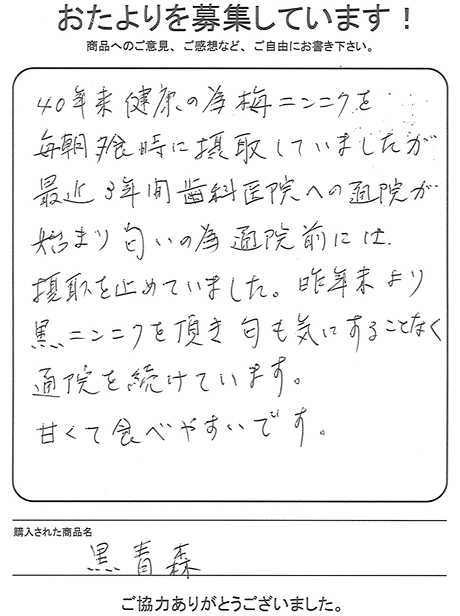 おたよりを募集しています！
商品へのご意見、ご感想など、ご自由にお書き下さい。
40年来健康の為梅ニンニクを
毎朝食時に摂取していましたが
最近3年間歯科医院への通院が
始まり匂いの為通院前には
摂取を止めていました。昨年末より
黒ニンニクを頂き匂も気にすることなく
通院を続けています。
甘くて食べやすいです。
購入された商品名
黒青森
ご協力ありがとうございました。